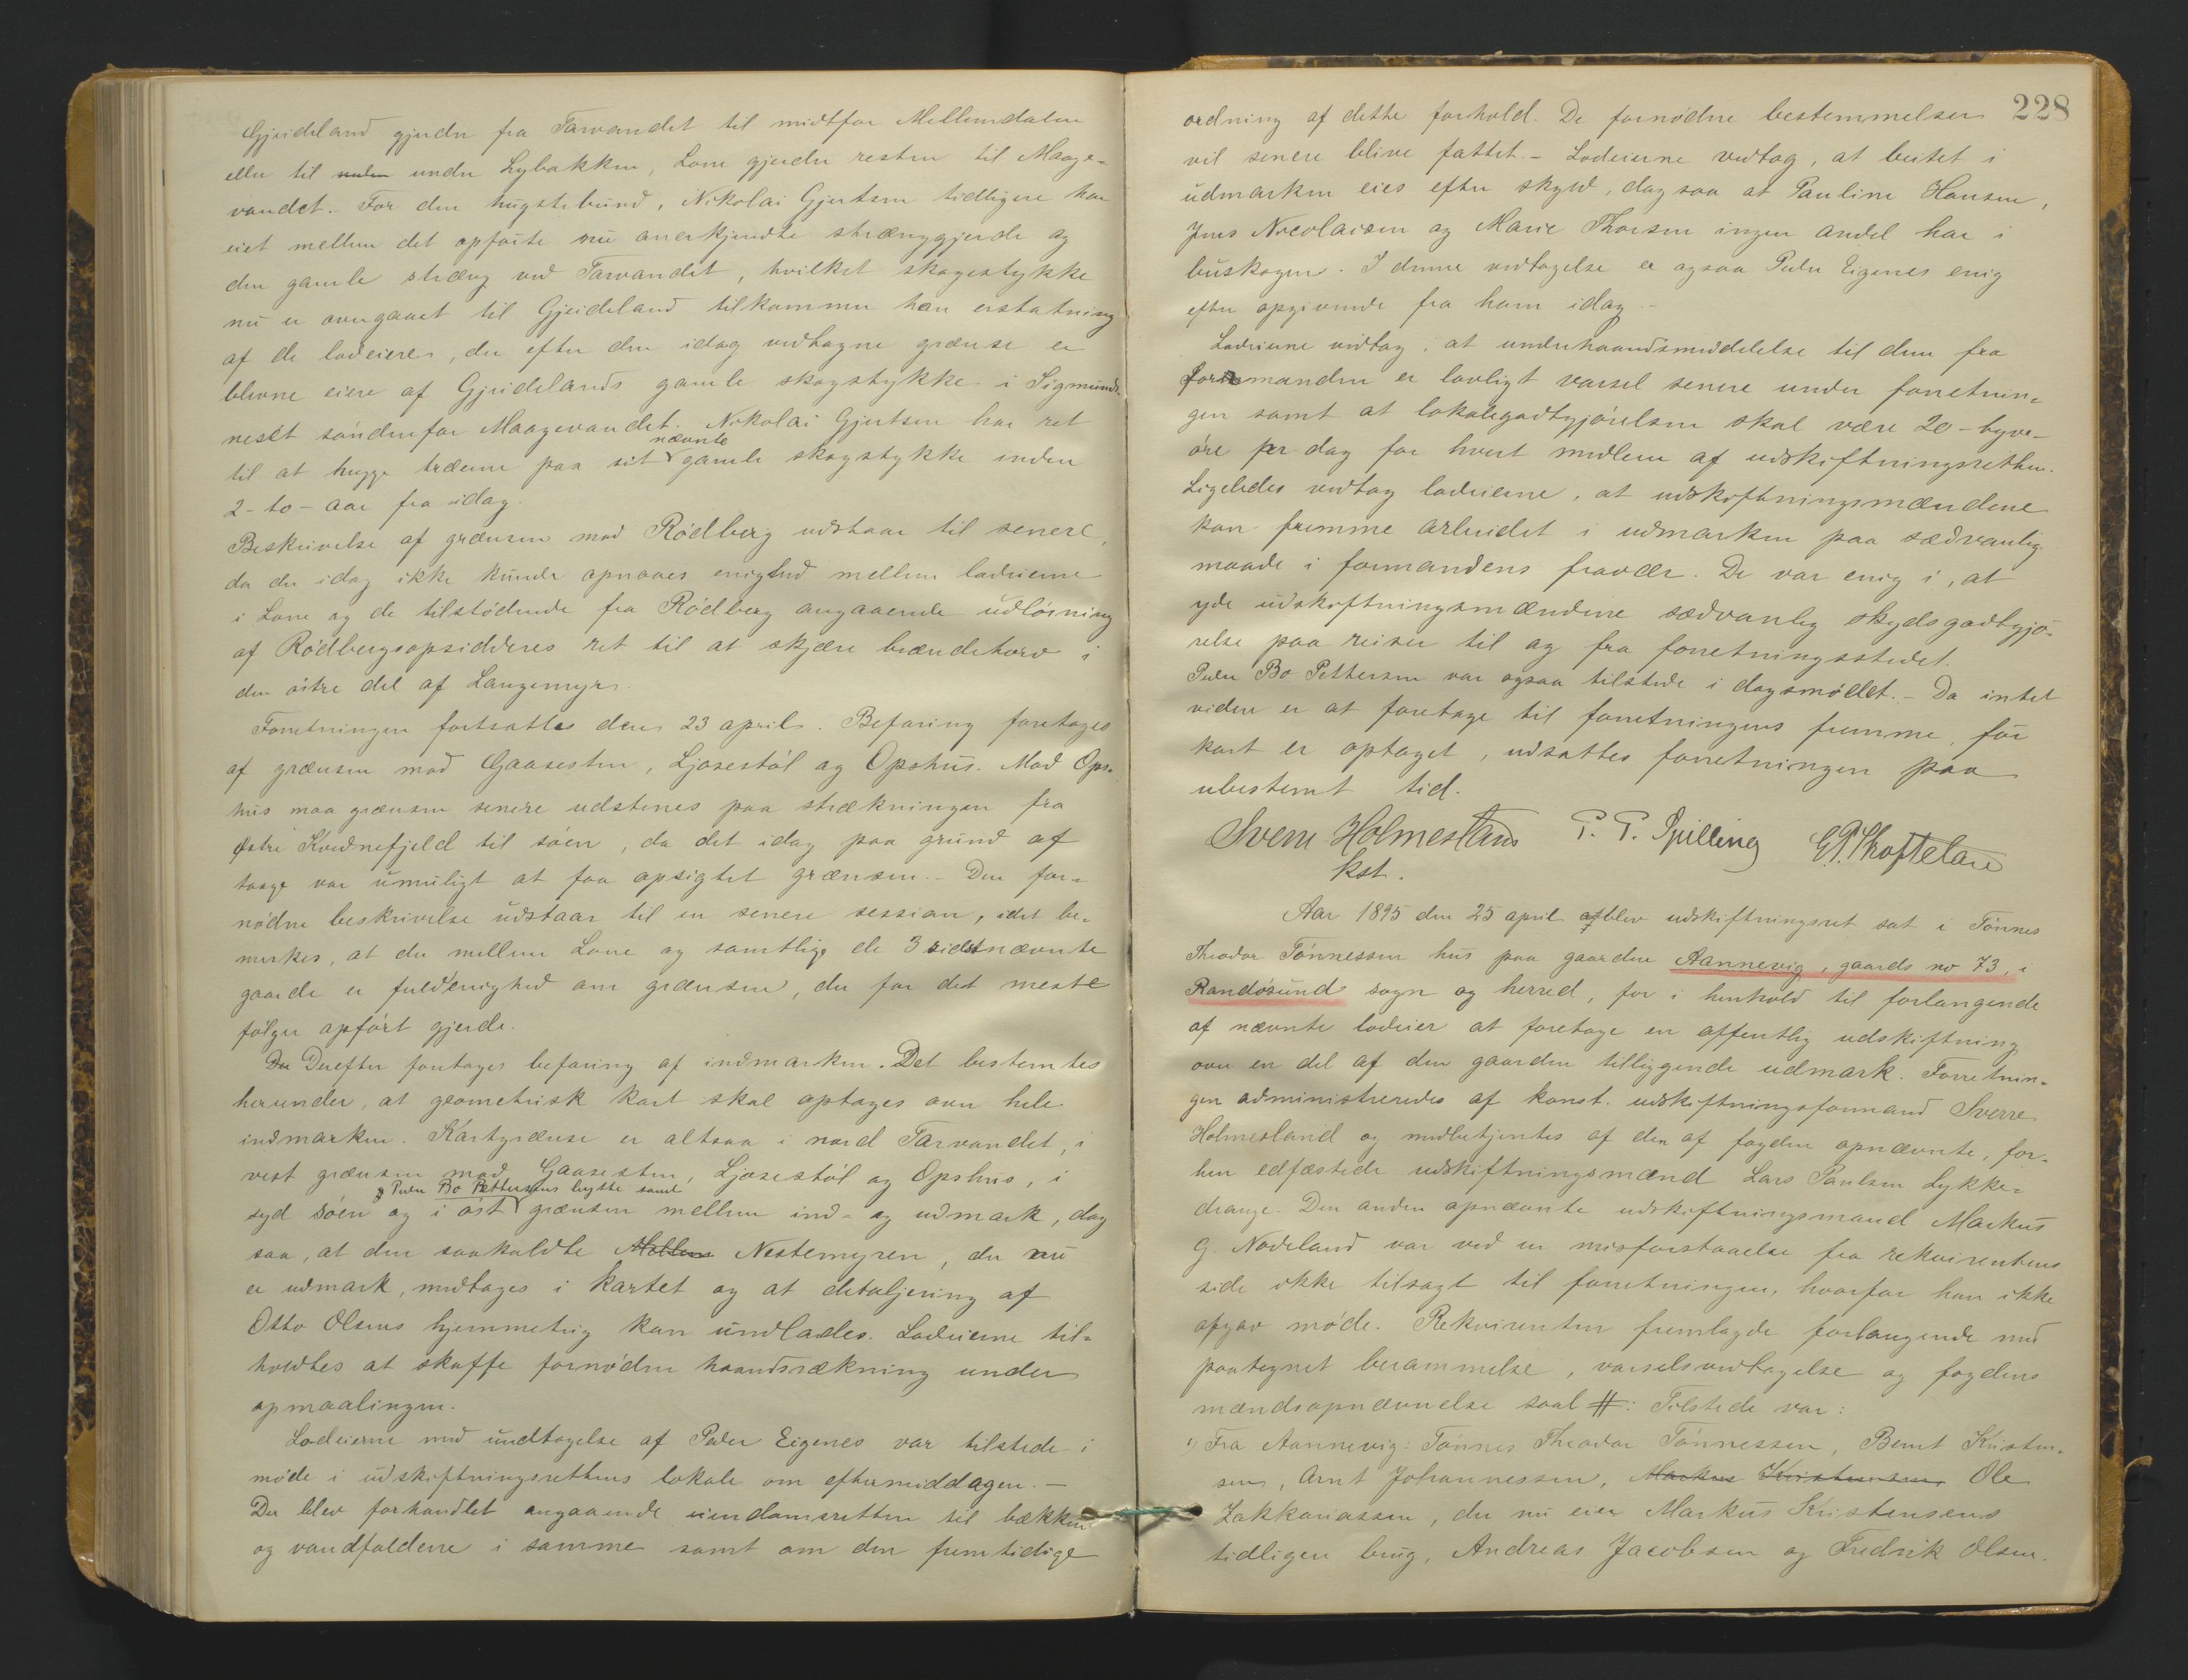 Gjeideland gjerder fra Tarvandet til midtfor Mellemdalen
eller til under Lybakken, Lone gjerder resten til Maage-
vandet. For den hugstebund, Nikolai Gjertsen tidligere har
eiet mellem det opførte nu anerkjendte strænggjerde og
den gamle stræng ved Tarvandet, hvilket skogstykke
nu er overgaaet til Gjeideland tilkommer han erstatning
af de lodeiere, der efter den idag vedtagne grænse er
blevne eiere af Gjeidelands gamle skogstykke i Sigmunds-
neset søndenfor Maagevandet. Nikolai Gjertsen har ret
til at hugge træerne paa sit nævnte gamle skogstykke inden
2-to-aar fra idag.
Beskrivelse af grænsen mod Rødberg udstaar til senere,
da der idag ikke kunde opnaaes enighed mellem lodeierne
i Lone og de tilstødende fra Rødberg angaaende udløsning
af Rødbergsopsidderes ret til at skjære brændetorv i
den østre del af Langemyr.
Forretningen fortsattes den 23 april. Befaring foretoges
af grænsen mod Gaasesten, Ljosestøl og Opshus. Mod Ops-
hus maa grænsen senere udstenes paa strækningen fra
Østre Kvednefjeld til søen, da det idag paa grund af
taage var umuligt at faa opsigtet grænsen. - Den for-
nødne beskrivelse udstaar til en senere session, idet be-
merkes, at der mellem Lone og samtlige de 3 sidstnævnte
gaarde er fuld enighed om grænsen, der for det meste
følger opført gjerde.
Derefter foretoges befaring af indmarken. Det bestemtes
herunder, at geometrisk kart skal optages over hele
indmarken. Kartgrænse er altsaa i nord Tarvandet, i
vest grænsen mod Gaasesten, Ljosestøl og Opshus, i
syd søen og i øst & Peder Bo Pettersens hytte samt grænsen mellem ind- og udmark, dog
saa, at den saakaldte Nestemyren, der nu
er udmark, medtages i kartet og at detaljering af
Otto Olsens hjemmeteig kan undlades. Lodeierne til-
holdtes at skaffe fornøden haandsrækning under
opmaalingen.
Lodeierne med undtagelse af Peder Eigenes var tilstede i
møde i udskiftningsrettens lokale om eftermiddagen. -
Der blev forhandlet angaaende eiendomsretten til bækken
og vandfaldene i samme samt om den fremtidige
228
ordning af dette forhold. De fornødne bestemmelser
vil senere blive fattet. - Lodeierne vedtog, at beitet i
udmarken eies efter skyld, dog saa at Pauline Hansen,
Jens Nicolaisen og Marie Thorsen ingen andel har i
buskogen. I denne vedtagelse er ogsaa Peder Eigenes enig
efter opgivende fra ham idag. -
Lodeierne vedtog, at underhaandsmeddelelse til dem fra
formanden er lovligt varsel senere under forretnin-
gen samt at lokalegodtgjørelsen skal være 20-tyve-
øre per dag for hvert medlem af udskiftningsretten.
Ligeledes vedtog lodeierne, at udskiftningsmændene
kan fremme arbeidet i udmarken paa sædvanlig
maade i formandens fravær. De var enig i, at
yde udskiftningsmændene sædvanlig skydsgodtgjø-
relse paa reiser til og fra forretningsstedet.
Peder Bo Pettersen var ogsaa tilstede i dagsmødet. - Da intet
videre er at foretage til forretningens fremme, før
kart er optaget, udsattes forretningen paa
ubestemt tid.
Sverre Holmesland P. T. Spilling
kst.
Aar 1895 den 25 april blev udskiftningsret sat i Tønnes
Theodor Tønnessen hus paa gaarden Aannevig, gaards no 73, i
Randøsund sogn og herred, for i henhold til forlangende
af nævnte lodeier at foretage en offentlig udskiftning
over en del af den gaarden tilliggende udmark. Forretnin-
gen administreredes af konst. udskiftningsformand Sverre
Holmesland og medbetjentes af den af fogden opnævnte, for-
hen edfæstede udskiftningsmænd Lars Paulsen Lykke-
drange. Den anden opnævnte udskiftningsmand Markus
G. Nodeland var ved en misforstaaelse fra rekvirentens
side ikke tilsagt til forretningen, hvorfor han ikke
afgav møde. Rekvirenten fremlagde forlangende med
paategnet berammelse, varselsvedtagelse og fogdens
mændsopnævnelse saal #: Tilstede var:
1) Fra Aannevig: Tønnes Theodor Tønnessen, Bernt Kristen-
sen, Arnt Johannessen, Markus Kristensen, Ole
Zakkariassen, der nu eier Markus Kristensens
tidligere brug, Andreas Jacobsen og Fredrik Olsen.